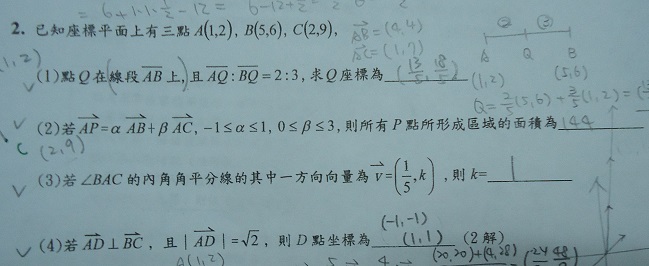 = 6+1·1·½-12 = 6-12+
2. 已知座標平面上有三點A(1,2), B(5,6), C(2,9),
AB=(4,4)
AC=(1,7)
② ③
A Q B
(1,2) (5,6)
(1,2)
(1)點Q在線段AB上,且AQ:BQ=2:3,求Q座標為 (13/5, 18/5)
Q=2/5(5,6)+3/5(1,2)=(
(2)若AP=α AB+β AC, -1≤α≤1, 0≤β≤3,則所有P點所形成區域的面積為 144
C (2,9)
(3)若∠BAC的內角角平分線的其中一方向向量為v=(1/5,k),則k= 1
(-1,-1)
(4)若AD⊥BC,且|AD|=√2,則D點坐標為 (1,1) (2解)
A(1,2)
(20,20)+(4,28)